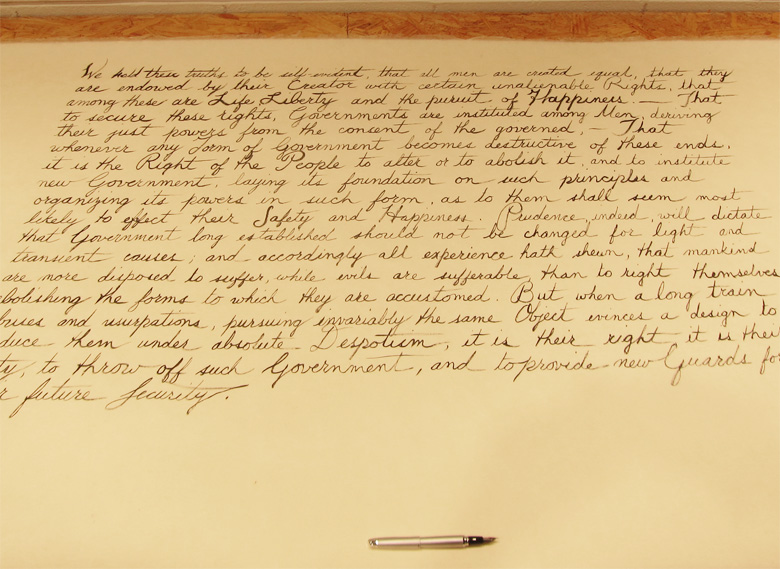 We hold these truths to be self-evident, that all men are created equal, that they
are endowed by their Creator with certain unalienable Rights, that
among these are Life Liberty and the pursuit of Happiness. — That
to secure these rights, Governments are instituted among Men, deriving
their just powers from the consent of the governed, — That
whenever any Form of Government becomes destructive of these ends,
it is the Right of the People to alter or to abolish it, and to institute
new Government, laying its foundation on such principles and
organizing its powers in such form, as to them shall seem most
likely to effect their Safety and Happiness. Prudence, indeed, will dictate
that Government long established should not be changed for light and
transient causes; and accordingly all experience hath shewn, that mankind
are more disposed to suffer, while evils are sufferable, than to right themselves
bolishing the forms to which they are accustomed. But when a long train
buses and usurpations, pursuing invariably the same Object evinces a design to
duce them under absolute Despotism, it is their right it is their
ty, to throw off such Government, and to provide new Guards for
r future Security.